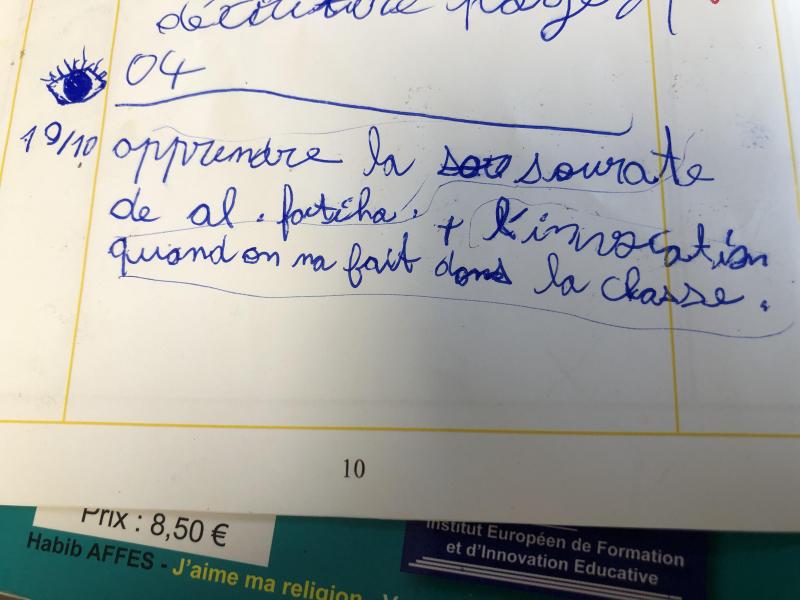 04
19/10 apprendre la sourate
de al. fatiha. + l'invocation
quand on na fait dans la classe.
10
Prix : 8,50 €
Habib AFFES - J'aime ma religion
Institut Européen de Formation
et d'Innovation Educative